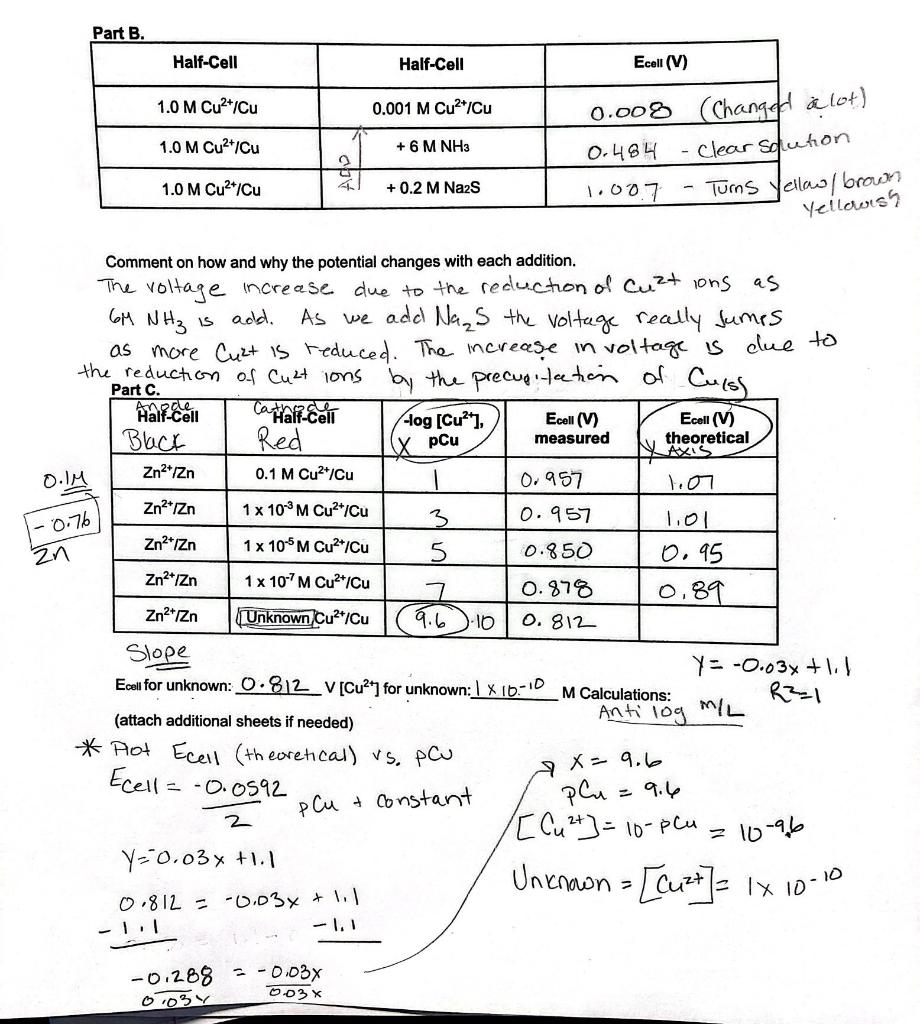 Part B.
Half-Cell Half-Cell Ecell (V)
1.0 M Cu²⁺/Cu 0.001 M Cu²⁺/Cu 0.008 (Changed a lot)
1.0 M Cu²⁺/Cu + 6 M NH₃ 0.484 - Clear solution
1.0 M Cu²⁺/Cu Add + 0.2 M Na₂S 1.007 - Turns yellow/brown
yellowish
Comment on how and why the potential changes with each addition.
The voltage increase due to the reduction of Cu²⁺ ions as
6M NH₃ is add. As we add Na₂S the voltage really Jumps
as more Cu²⁺ is reduced. The increase in voltage is due to
the reduction of Cu²⁺ ions by the precipitation of Cu(s)
Part C.
Anode Cathode
Half-Cell Half-Cell -log [Cu²⁺], Ecell (V) Ecell (V)
Black Red X pCu measured theoretical
Y AXIS
0.1M Zn²⁺/Zn 0.1 M Cu²⁺/Cu 1 0.957 1.07
-0.76 Zn²⁺/Zn 1 x 10⁻³ M Cu²⁺/Cu 3 0.957 1.01
Zn Zn²⁺/Zn 1 x 10⁻⁵ M Cu²⁺/Cu 5 0.850 0.95
Zn²⁺/Zn 1 x 10⁻⁷ M Cu²⁺/Cu 7 0.878 0.89
Zn²⁺/Zn Unknown Cu²⁺/Cu 9.6 10 0.812
Slope
Y = -0.03x + 1.1
Ecell for unknown: 0.812 V [Cu²⁺] for unknown: 1 x 10⁻¹⁰ M Calculations: R²=1
Anti log m/L
(attach additional sheets if needed)
* Plot Ecell (theoretical) vs. pCu
Ecell = -0.0592/2 pCu + constant
Y=-0.03x +1.1
0.812 = -0.03x + 1.1
-1.1 -1.1
-0.288 = -0.03x
0.03x 0.03x
x = 9.6
pCu = 9.6
[Cu²⁺] = 10-pCu = 10-9.6
Unknown = [Cu²⁺] = 1x 10-10